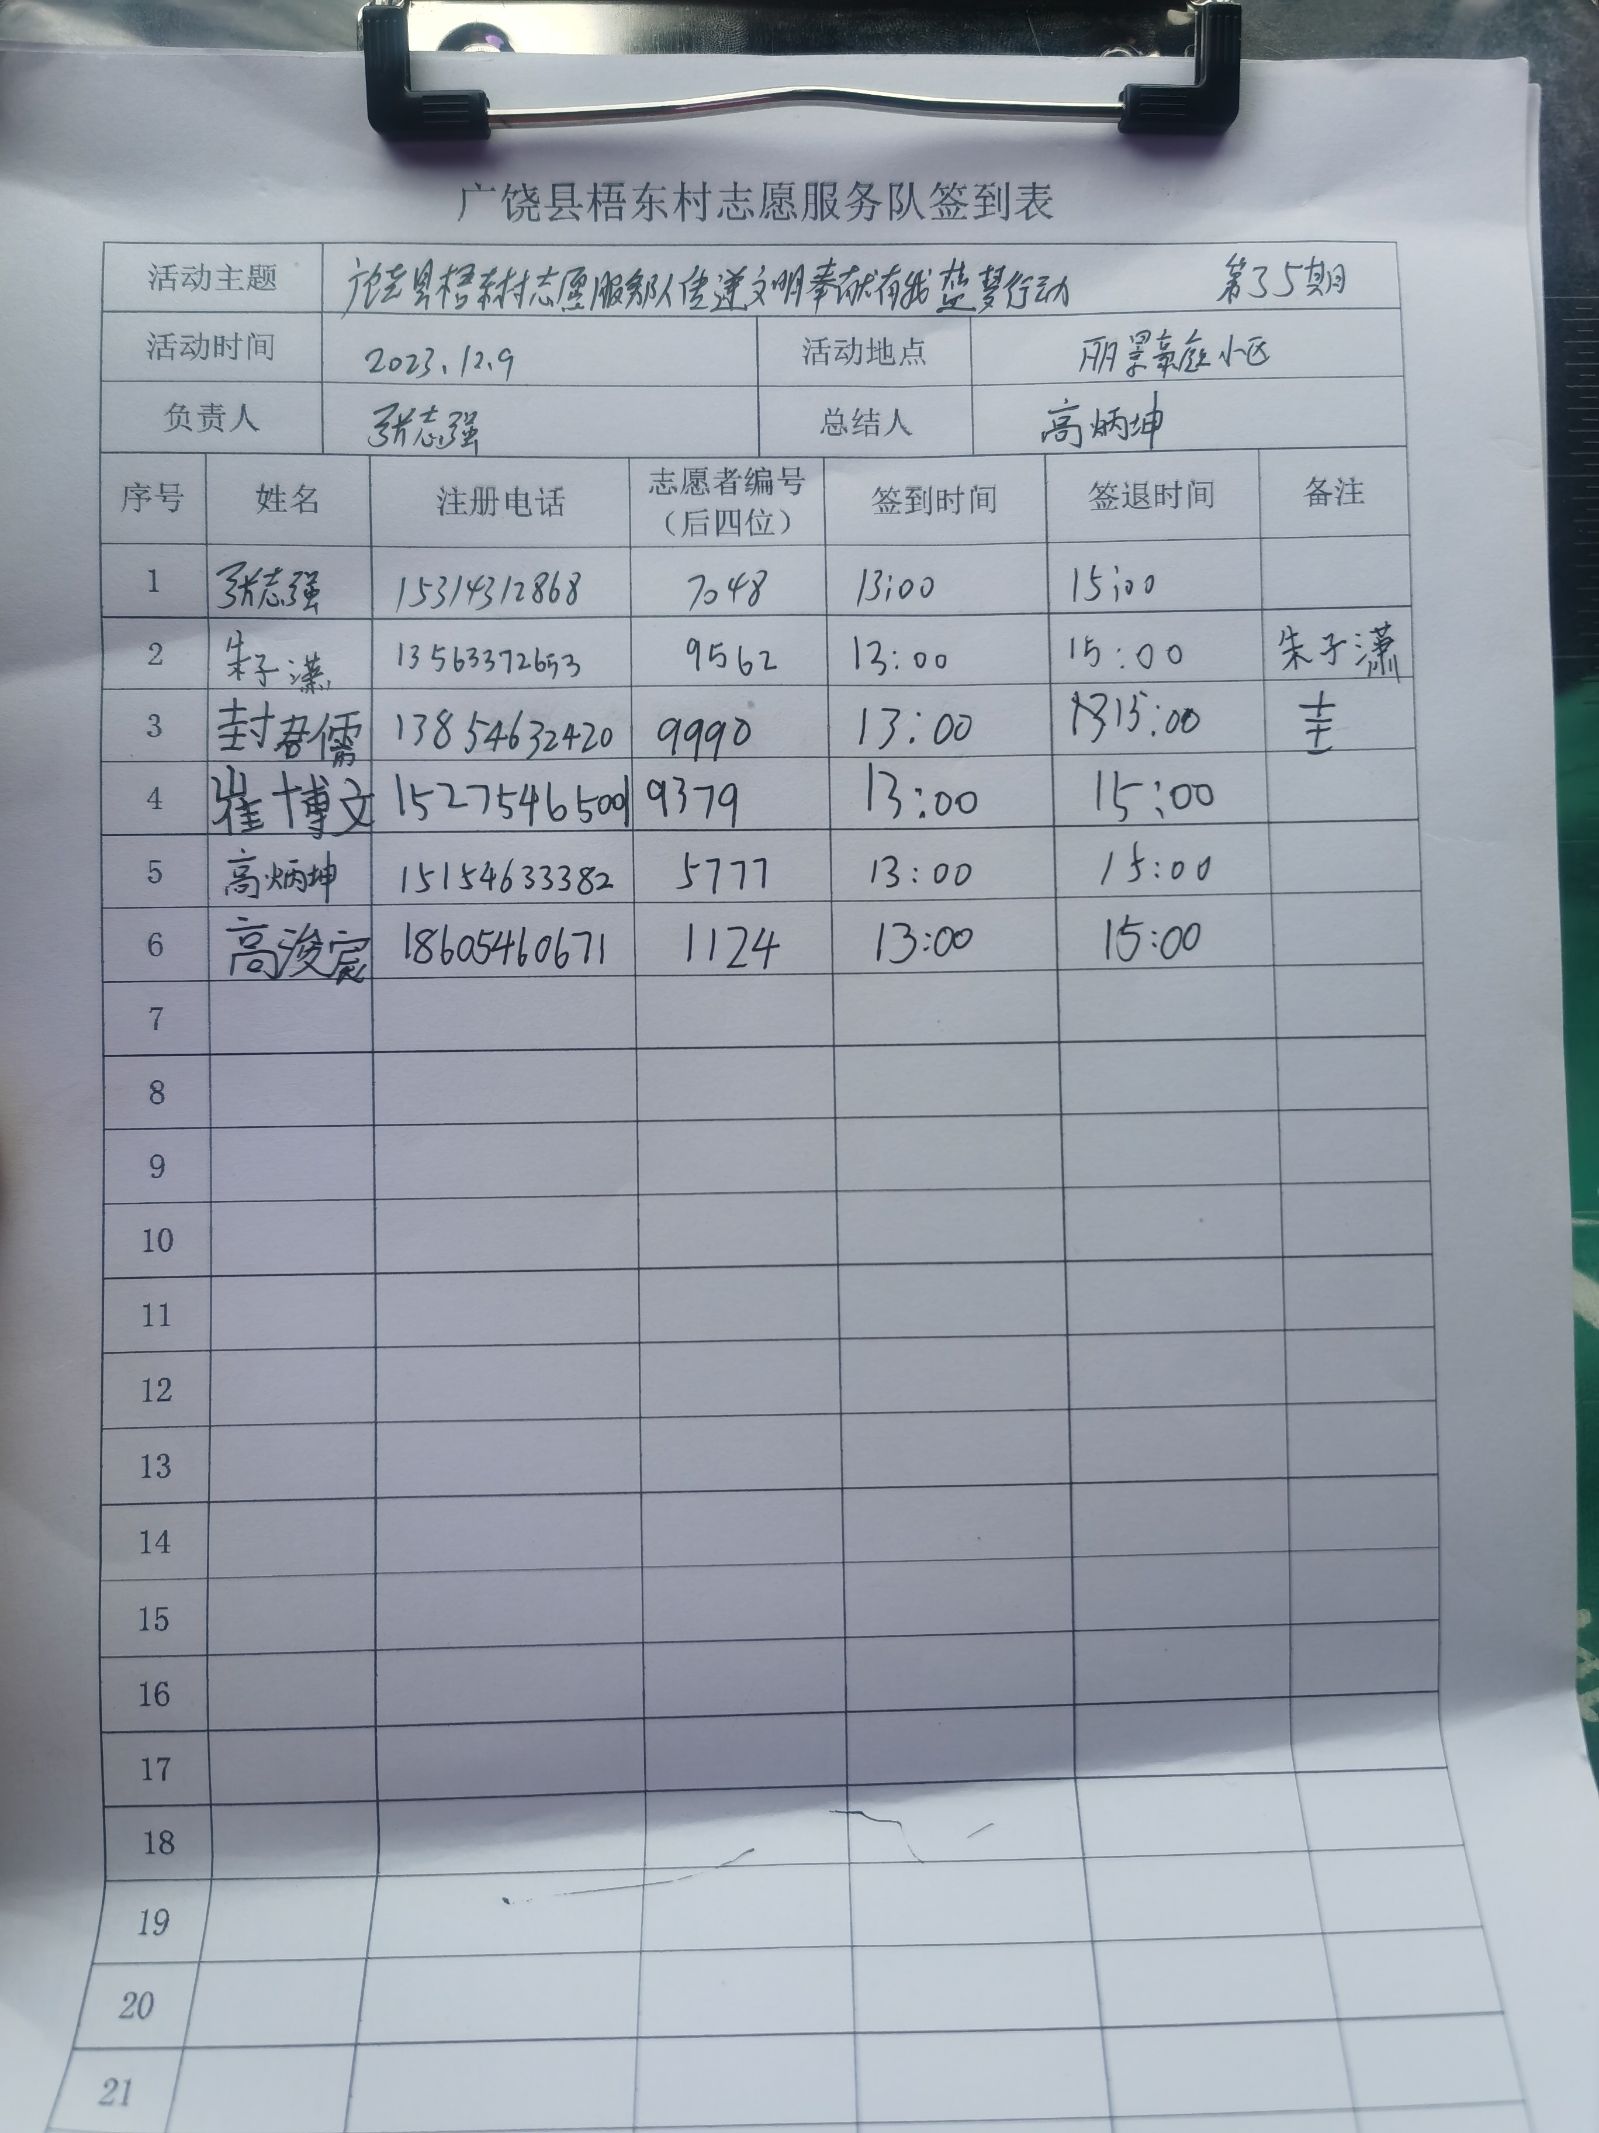 广饶县梧东村志愿服务队签到表
活动主题 广饶县梧东村志愿服务队传递文明奉献有我楚梦行动 第35期
活动时间 2023.12.9 活动地点 丽景豪庭小区
负责人 张志强 总结人 高炳坤
序号 姓名 注册电话 志愿者编号（后四位） 签到时间 签退时间 备注
1 张志强 15314312868 7048 13:00 15:00
2 朱子潇 13563372653 9562 13:00 15:00 朱子潇
3 封君儒 13854632420 9990 13:00 15:00
4 崔博文 15275465009 9379 13:00 15:00
5 高炳坤 15154633382 5777 13:00 15:00
6 高浚宸 18605460671 1124 13:00 15:00
7
8
9
10
11
12
13
14
15
16
17
18
19
20
21